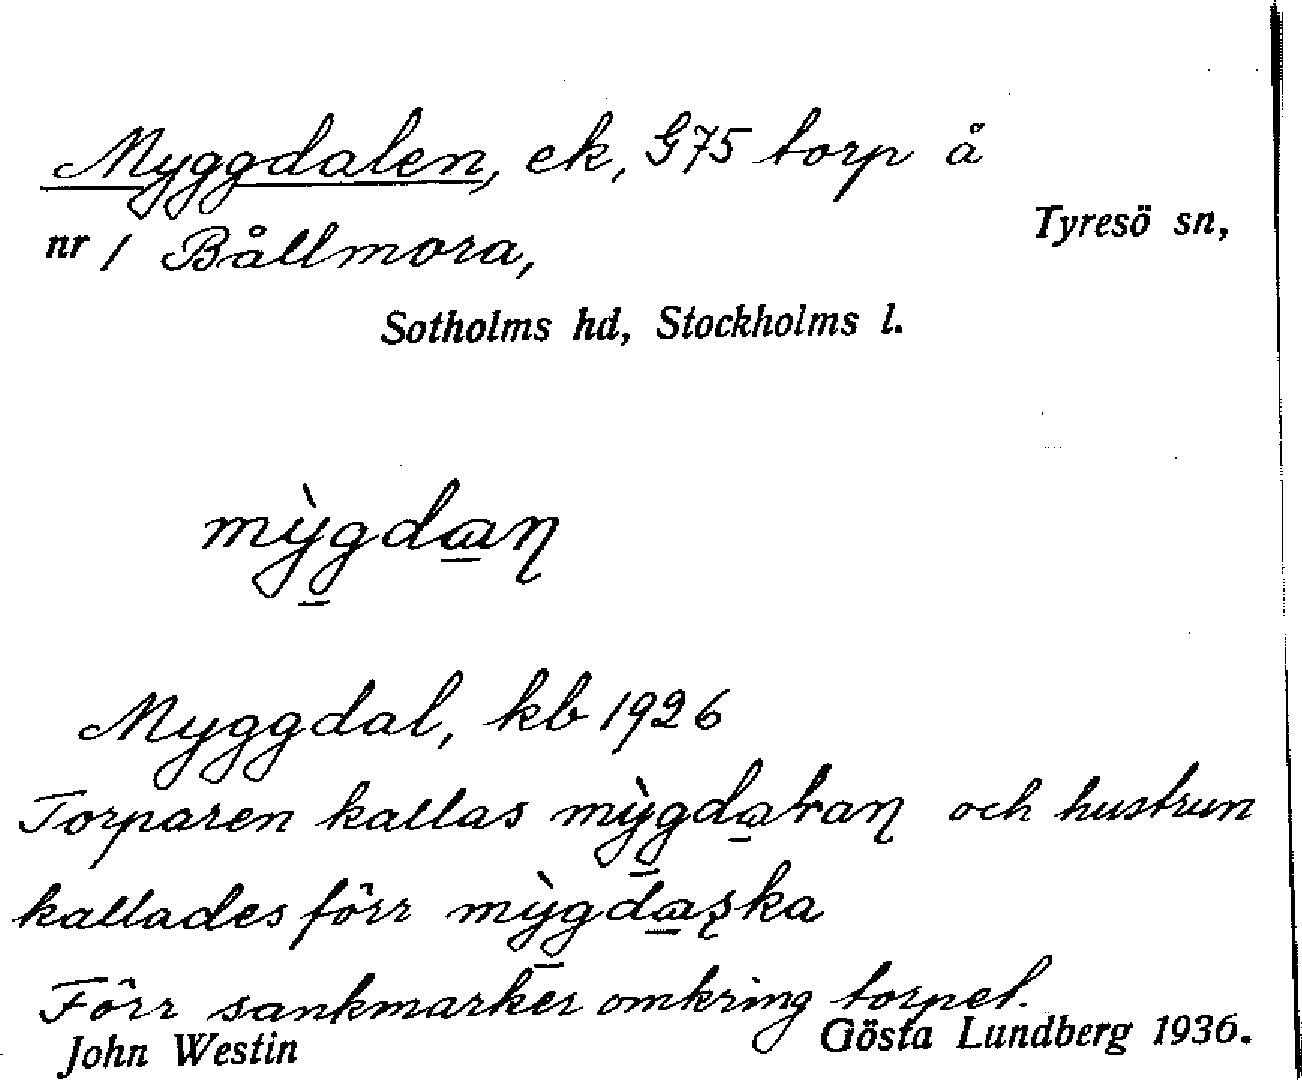 Myggdalen, ek, G75 torp å
Tyresö sn,
nr 1 Bållmora,
Sotholms hd, Stockholms l.
mỳgdaɳ
Myggdal, kb 1926
Torparen kallas mỳgdaɽaɳ och hustrun
kallades förr mỳgdaʂka
Förr sankmarker omkring torpet.
John Westin
Gösta Lundberg 1936.